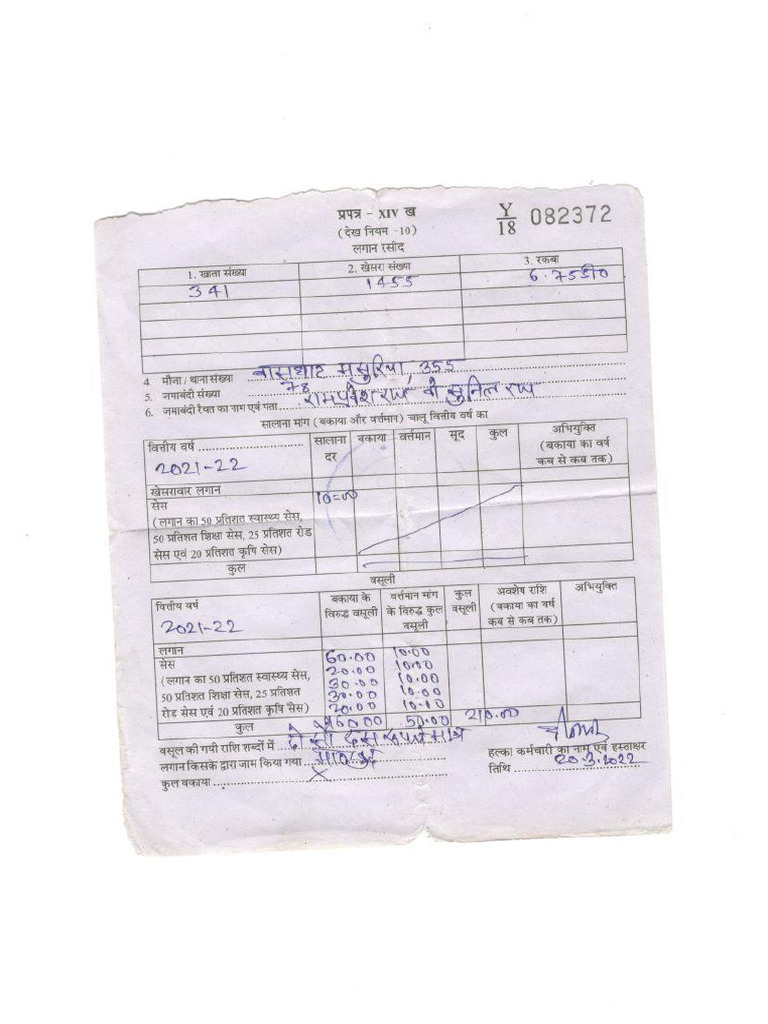 प्रपत्र - XIV ख
Y/18 082372
(देख नियम -10)
लगान रसीद
1. खाता संख्या 2. खेसरा संख्या 3. रकबा
341 1455 6.75डी०
4. मौजा / थाना संख्या 355
5. जमाबंदी संख्या 78
6. जमाबंदी रैयत का नाम एवं पता
सालाना मांग (बकाया और वर्त्तमान) चालू वित्तीय वर्ष का
वित्तीय वर्ष सालाना दर बकाया वर्त्तमान सूद कुल अभियुक्ति (बकाया का वर्ष कब से कब तक)
2021-22
खेसरावार लगान
सेस 10=00
(लगान का 50 प्रतिशत स्वास्थ्य सेस,
50 प्रतिशत शिक्षा सेस, 25 प्रतिशत रोड
सेस एवं 20 प्रतिशत कृषि सेस)
कुल
वसूली
वित्तीय वर्ष बकाया के विरुद्ध वसूली वर्त्तमान मांग के विरुद्ध कुल वसूली कुल वसूली अवशेष राशि (बकाया का वर्ष कब से कब तक) अभियुक्ति
2021-22
लगान 60.00 10.00
सेस 20.00 10.00
(लगान का 50 प्रतिशत स्वास्थ्य सेस, 30.00 10.00
50 प्रतिशत शिक्षा सेस, 25 प्रतिशत 30.00 10.00
रोड सेस एवं 20 प्रतिशत कृषि सेस) 20.00 10.10
कुल 160.00 50.00 210.00
वसूल की गयी राशि शब्दों में दो सौ दस रूपये मात्र
हल्का कर्मचारी का नाम एवं हस्ताक्षर
लगान किसके द्वारा जाम किया गया
तिथि 20.3.2022
कुल बकाया X